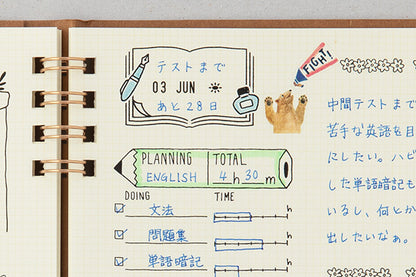 テストまで
03 JUN
あと28日
FIGHT!
PLANNING TOTAL
ENGLISH 4h 30m
DOING TIME
文法 h
問題集 h
単語暗記 h
中間テストまで
苦手な英語を目
にしたい。ハピ
した単語暗記も
いるし、何とか
出したいなぁ。